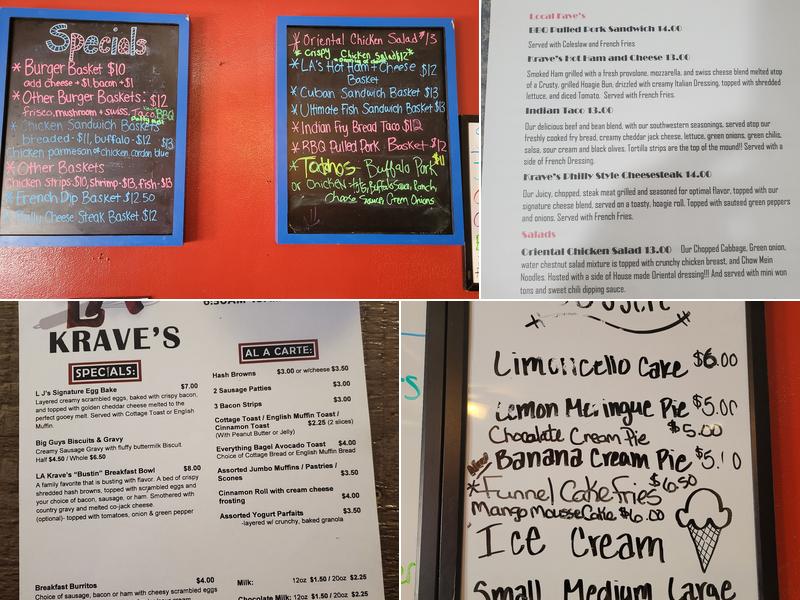 Specials
* Burger Basket $10
add cheese +$1, bacon +$1
* Other Burger Baskets: $12
frisco, mushroom + swiss, Taco BBQ
Patty Melt
* Chicken Sandwich Baskets
breaded - $11, buffalo - $12
Chicken parmesan or chicken cordon blue $13
* Other Baskets
Chicken Strips-$10, Shrimp-$13, Fish-$13
* French Dip Basket $12.50
* Philly Cheese Steak Basket $12
* Oriental Chicken Salad $13
* Crispy Chicken Salad $12
* LA's Hot Ham + Cheese $12
Basket
* Cuban Sandwich Basket $13
* Ultimate Fish Sandwich Basket $13
* Indian Fry Bread Taco $12
* BBQ Pulled Pork Basket $12
* Buffalo Pork $11
or Chicken - Buffalo Sauce, Ranch
Cheese Sauce Green Onions
Local Fave's
BBQ Pulled Pork Sandwich 14.00
Served with Coleslaw and French Fries
Krave's Hot Ham and Cheese 13.00
Smoked Ham grilled with a fresh provolone, mozzarella, and swiss cheese blend melted atop
of a Crusty, grilled Hoagie Bun, drizzled with creamy Italian Dressing, topped with shredded
lettuce, and diced Tomato. Served with French Fries.
Indian Taco 13.00
Our delicious beef and bean blend, with our southwestern seasonings, served atop our
freshly cooked fry bread, creamy cheddar jack cheese, lettuce, green onions, green chilis,
salsa, sour cream and black olives. Tortilla strips are the top of the mound!! Served with a
side of French Dressing.
Krave's Philly Style Cheesesteak 14.00
Our Juicy, chopped, steak meat grilled and seasoned for optimal flavor, topped with our
signature cheese blend, served on a toasty, hoagie roll. Topped with sauteed green peppers
and onions. Served with French Fries.
Salads
Oriental Chicken Salad 13.00 Our Chopped Cabbage, Green onion,
water chestnut salad mixture is topped with crunchy chicken breast, and Chow Mein
Noodles. Served with a side of House made Oriental dressing!!! And served with mini won
tons and sweet chili dipping sauce.
LA
KRAVE'S
SPECIALS:
L J's Signature Egg Bake $7.00
Layered creamy scrambled eggs, baked with crispy bacon,
and topped with golden cheddar cheese melted to the
perfect gooey melt. Served with Cottage Toast or English
Muffin.
Big Guys Biscuits & Gravy
Creamy Sausage Gravy with fluffy buttermilk Biscuit
Half $4.50 / Whole $6.50
LA Krave's "Bustin" Breakfast Bowl $8.00
A family favorite that is busting with flavor. A bed of crispy
shredded hash browns, topped with scrambled eggs and
your choice of bacon, sausage, or ham. Smothered with
country gravy and melted co-jack cheese.
(optional)- topped with tomatoes, onion & green pepper
Breakfast Burritos $4.00
Choice of sausage, bacon or ham with cheesy scrambled eggs
AL A CARTE:
Hash Browns $3.00 or w/cheese $3.50
2 Sausage Patties $3.00
3 Bacon Strips $3.00
Cottage Toast / English Muffin Toast /
Cinnamon Toast $2.25 (2 slices)
(With Peanut Butter or Jelly)
Everything Bagel Avocado Toast $4.00
Choice of Cottage Bread or English Muffin Bread
Assorted Jumbo Muffins / Pastries /
Scones $3.50
Cinnamon Roll with cream cheese
frosting $4.00
Assorted Yogurt Parfaits $3.50
-layered w/ crunchy, baked granola
Milk: 12oz $1.50 / 20oz $2.25
Chocolate Milk: 12oz $1.50 / 20oz $2.25
Limoncello Cake $6.00
Lemon Meringue Pie $5.00
Chocolate Cream Pie $5.00
Banana Cream Pie $5.00
* Funnel Cake Fries $6.50
Mango Mousse Cake $6.00
Ice Cream
Small Medium Large